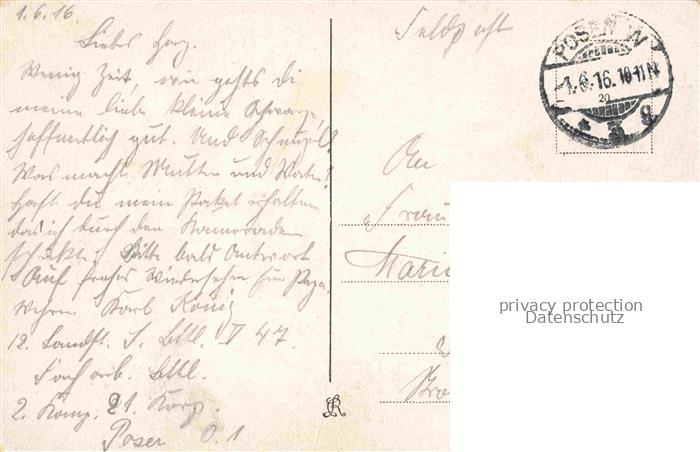 1.6.16.
Liebes Herz.
Wenig Zeit, wie gehts di
meine liebe kleine Schwarze,
hoffentlich gut. Und Schnuzel?
Was macht Mutter und Vater?
Hast du mein Paket erhalten
das ich durch den Kameraden
schickte. Bitte bald Antwort
Auf frohes Wiedersehn Eur Papa.
Wehrm. Karl König
12. Landst. I. Btl. V 47
Btl.
2. Komp. 21. Korp.
Posen O. 1
Feldpost
POSEN W
1.6.16.10-11N
* 3 g
An
Frau
Marie
privacy protection
Datenschutz